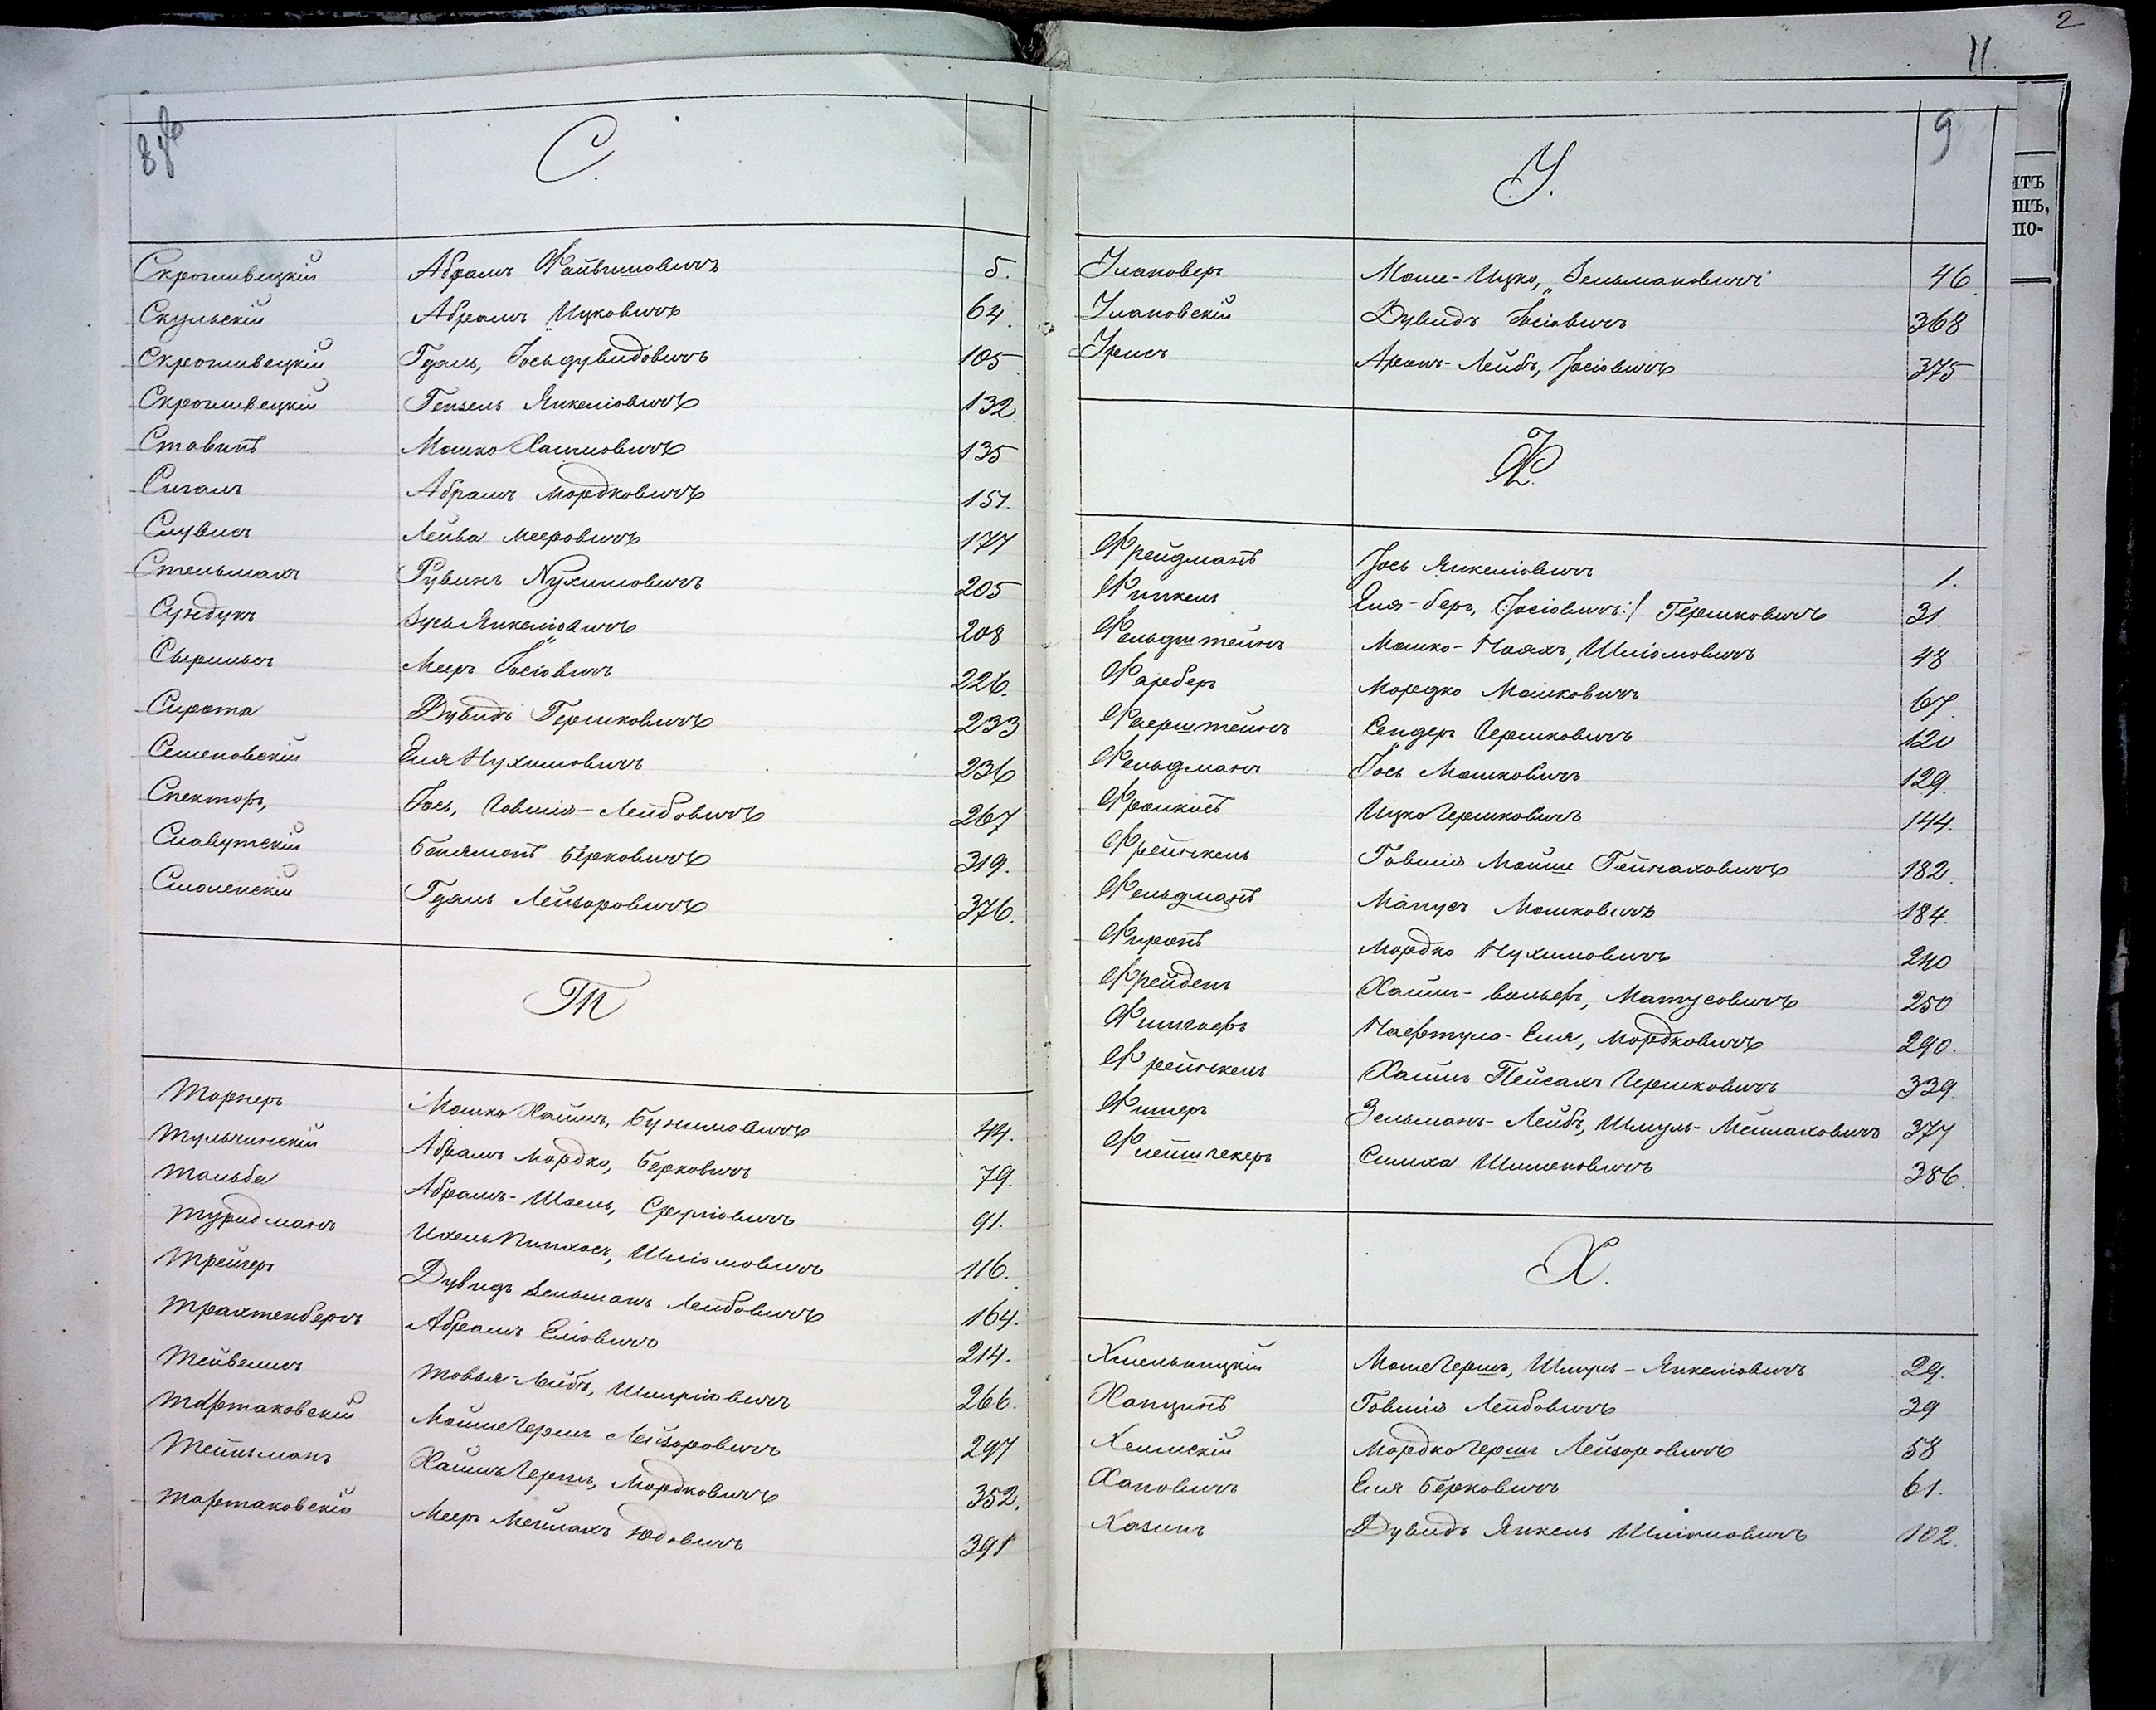 2
11
С.
Скрогливецкій Абрамъ Файвишовичъ 5.
Скульскій Абрамъ Ицковичъ 64.
Скрогливецкій Гдаль, Іось дувидовичъ 105
Скрогливецкій Гензель Янкеліовичъ 132.
Ставинъ Мошко Хаимовичъ 135
Сигалъ Абрамъ Мордковичъ 151.
Слувисъ Лейба Мееровичъ 177
Стельмахъ Рувинъ Нухимовичъ 205
Сундукъ Зусь Янкеліовичъ 208
Мееръ Іосіовичъ 226.
Сирота Дувидъ Гершковичъ 233
Семеновскій Еля Нухимовичъ 236
Спекторъ, Іось, Говшіа-Лейбовичъ 267
Славутскій Беняменъ Берковичъ 319.
Смоленскій Гдаль Лейзоровичъ 376.
Т
Торнеръ Мошко Хаимъ, Бунимовичъ 44.
Тульчинскій Абрамъ Мордко, Берковичъ 79.
Тольба Абрамъ-Шаель, Сруліовичъ 91.
Туридманъ Ихель Пинхосъ, Шліомовичъ 116.
Трейгеръ Дувидъ Зельманъ Лейбовичъ 164.
Трахтенбергъ Абрамъ Еліовичъ 214.
Тейвелисъ Товья-Лейбъ, Шмуліовичъ 266.
Тартаковскій Мойше Гершъ Лейзоровичъ 297
Тейтельманъ Хаимъ Гершъ, Мордковичъ 352.
Тартаковскій Мееръ Мейлахъ Юдовичъ 391
9
У.
Улановеръ Моше-Ицко, Зельмановичъ 46.
Улановскій Дувидъ Іосіовичъ 368
Урисъ Аронъ-Лейбъ, Іосіовичъ 375
Ф.
Фрейдманъ Іось Янкеліовичъ 1.
Финкель Еля-беръ, (:Іосіовичъ:) Гершковичъ 31.
Фельдштейнъ Мошко-Ноахъ, Шліомовичъ 48
Фарберъ Мордко Мошковичъ 67.
Фаерштейнъ Сендеръ Гершковичъ 120
Фельдманъ Іось Мошковичъ 129.
Ицко Гершковичъ 144.
Френкель Говшіа Мойше Пейсаховичъ 182.
Фельдманъ Манусъ Мошковичъ 184.
Фиронъ Мордко Нухимовичъ 240
Фрейденъ Хаимъ-вольфъ, Матусовичъ 250
Нафтула-Еля, Мордковичъ 290.
Френкель Хаимъ Пейсахъ Гершковичъ 339.
Фишеръ Зельманъ-Лейбъ, Шмуль-Мейлаховичъ 377
Флейшгекеръ Симха Шименовичъ 386.
Х.
Хмельницкій Моше Гершъ, Шмуль-Янкеліовичъ 29.
Ханцинъ Говшіа Лейбовичъ 39
Хелмскій Мордко Гершъ Лейзоровичъ 58
Хаповичъ Еля Берковичъ 61.
Хазинъ Дувидъ Янкель Шліомовичъ 102.
итъ
шъ,
по-